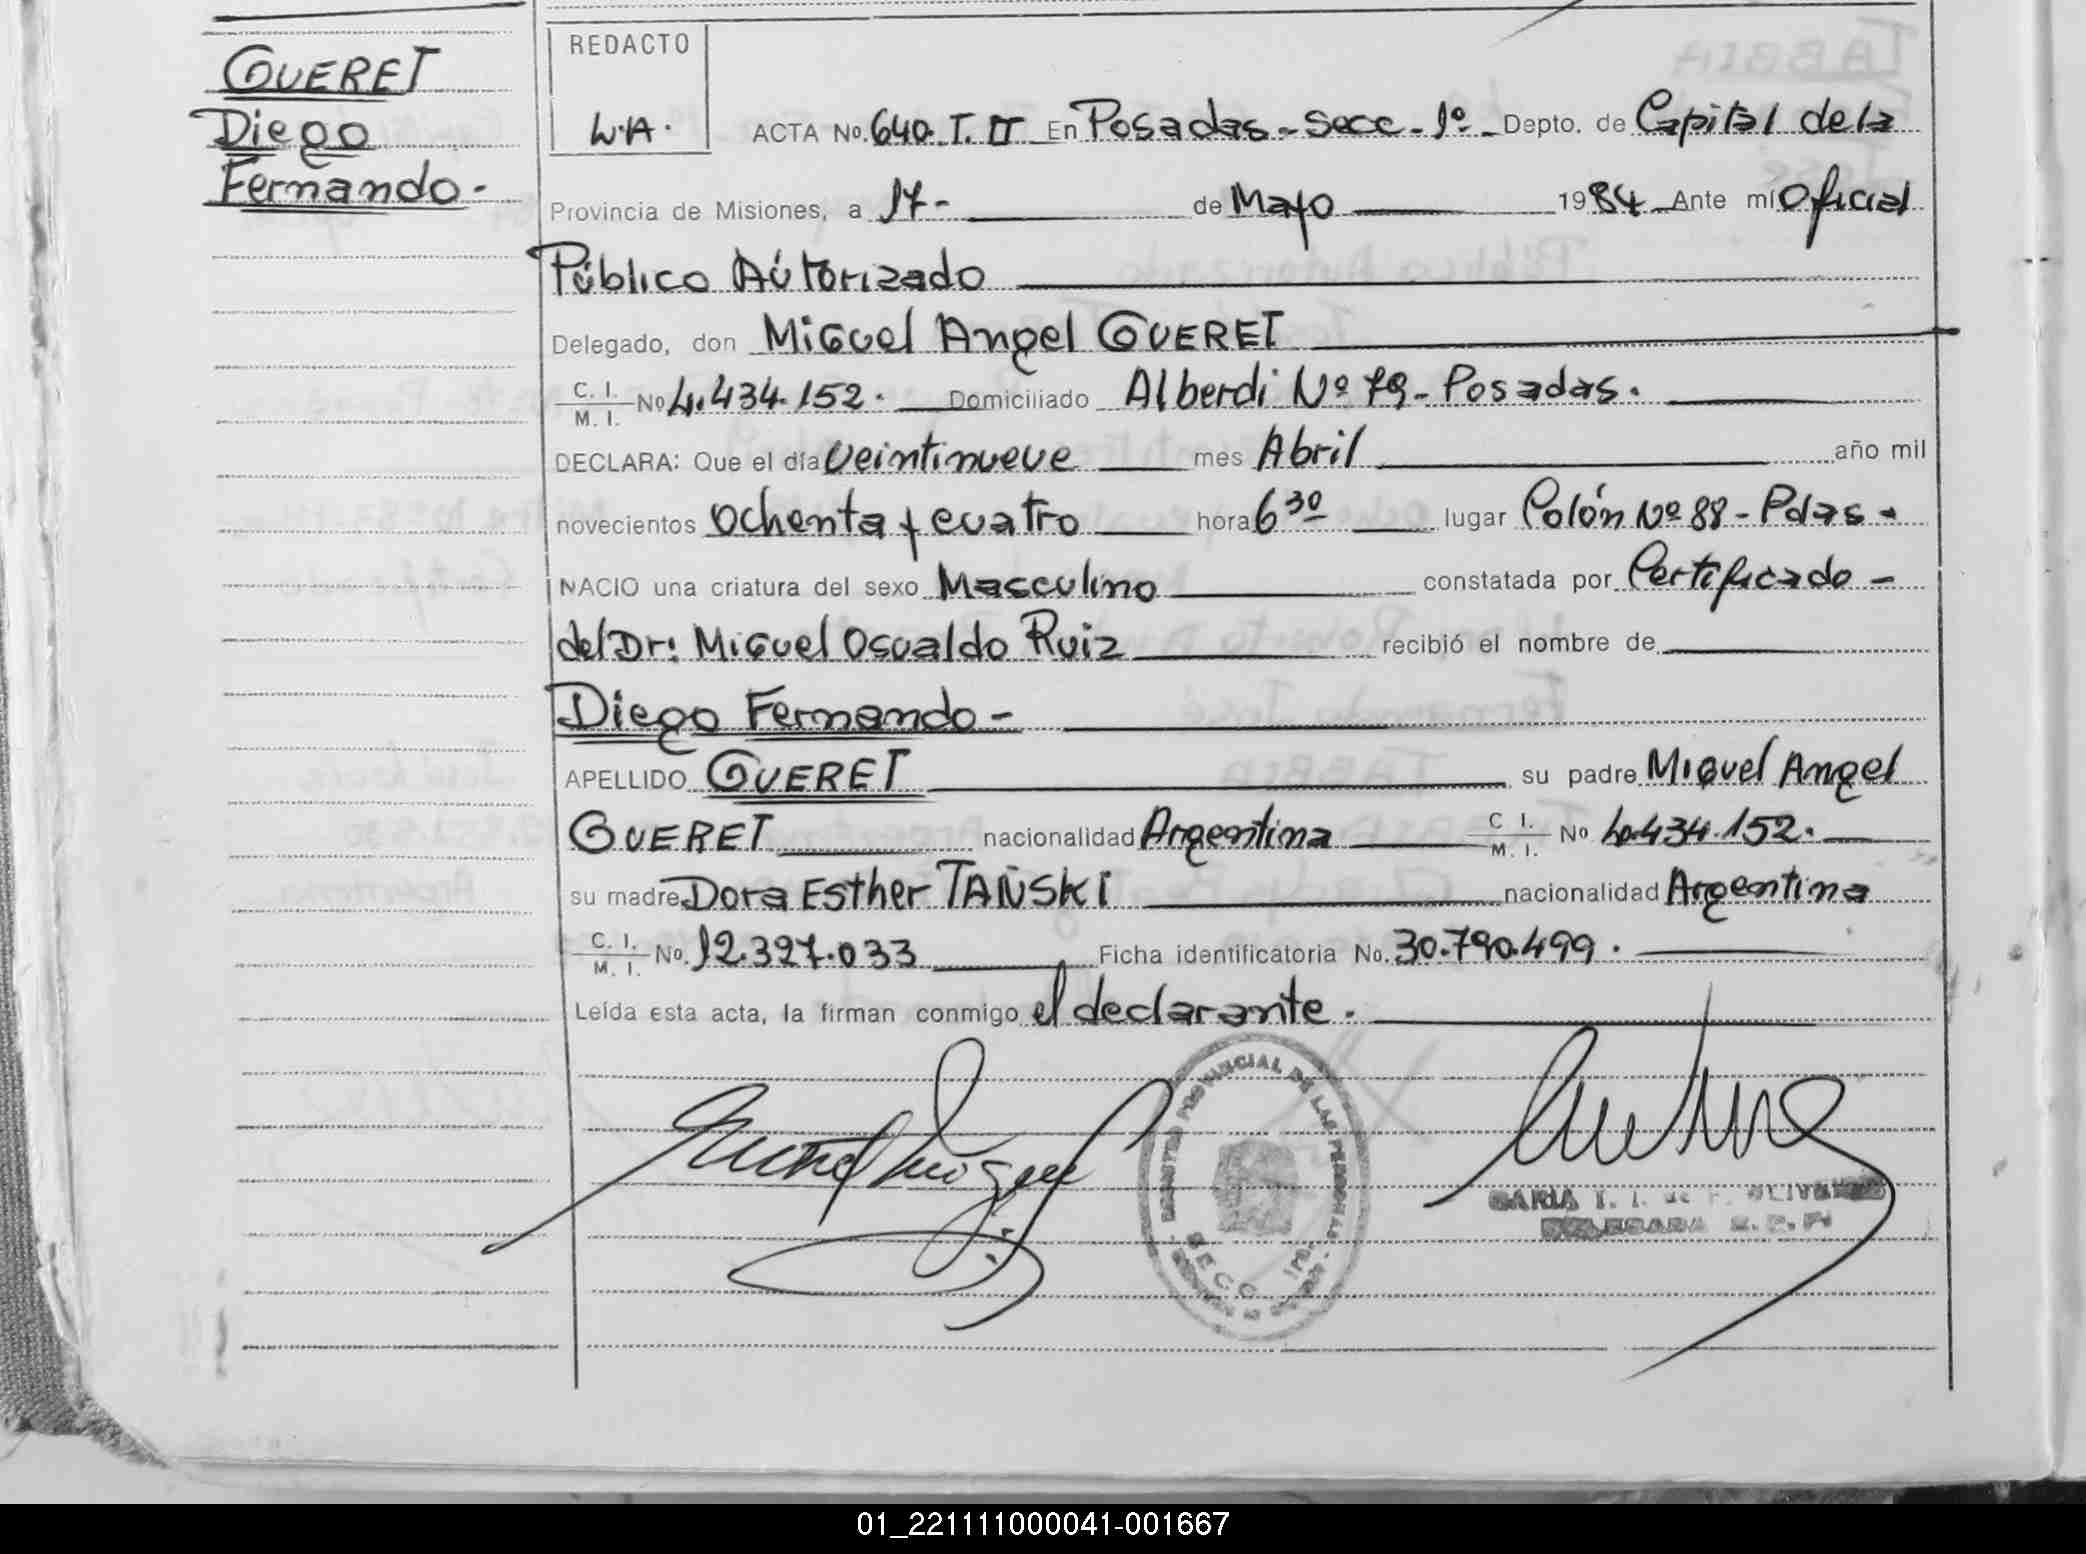 GUERET
Diego
Fernando-
REDACTO
W.A.
ACTA No. 640. T. II En Posadas - Secc - 1º - Depto. de Capital de la
Provincia de Misiones, a 17- de Mayo 1984 Ante mí Oficial
Público Autorizado
Delegado, don Miguel Angel GUERET
C. I. M. I. No 4.434.152. Domiciliado Alberdi Nº 79 - Posadas.
DECLARA: Que el día veintinueve mes Abril año mil
novecientos ochenta y cuatro hora 6 30 lugar Colón Nº 88 - Pdas -
NACIO una criatura del sexo Masculino constatada por Certificado -
del Dr: Miguel Osvaldo Ruiz recibió el nombre de
Diego Fernando-
APELLIDO GUERET su padre Miguel Angel
GUERET nacionalidad Argentina C I. M. I. No 4.434.152.
su madre Dora Esther TAÑSKI nacionalidad Argentina
C. I. M. I. No. 12.327.033 Ficha identificatoria No. 30.790.499.
Leída esta acta, la firman conmigo el declarante.
REGISTRO PROVINCIAL DE LAS PERSONAS
SECC. 1RA.
01_221111000041-001667